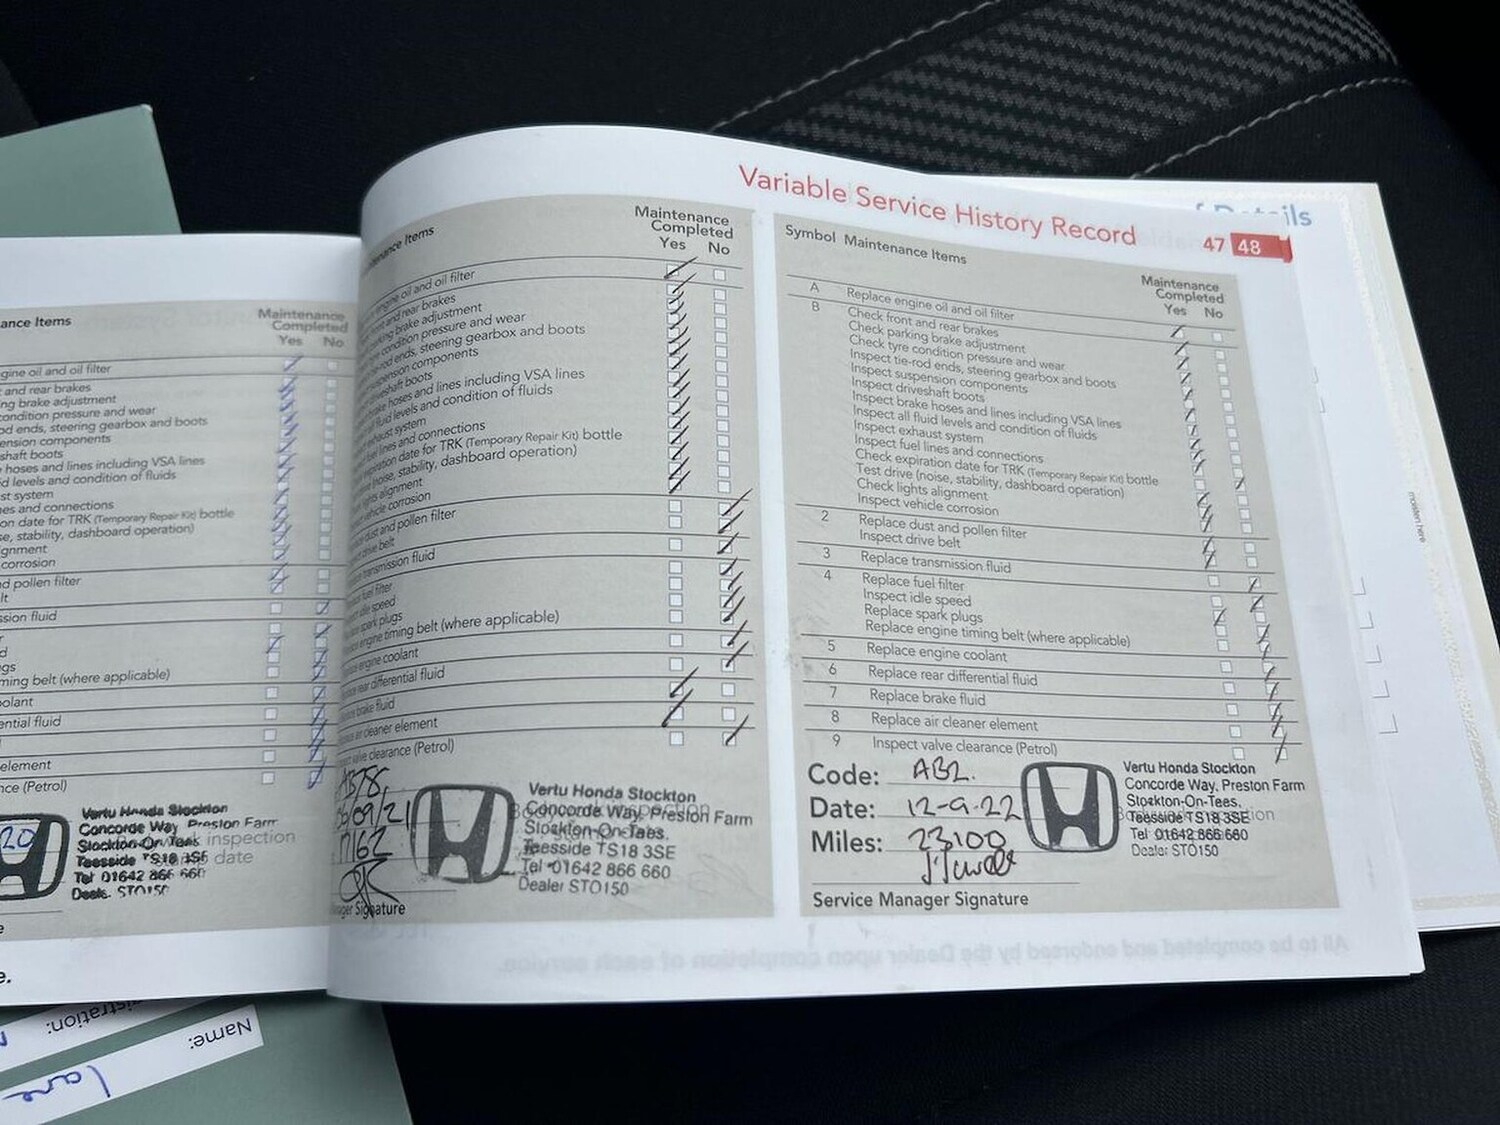 Variable Service History Record
47 48
ils
ance Items
Maintenance
Completed
Yes No
gine oil and oil filter
and rear brakes
ng brake adjustment
condition pressure and wear
od ends, steering gearbox and boots
ension components
shaft boots
hoses and lines including VSA lines
id levels and condition of fluids
st system
nes and connections
on date for TRK (Temporary Repair Kit) bottle
se, stability, dashboard operation)
gnment
corrosion
d pollen filter
lt
ssion fluid
r
d
gs
ming belt (where applicable)
oolant
ential fluid
element
nce (Petrol)
20
Vertu Honda Stockton
Concorde Way, Preston Farm
Stockton-On-Tees
Teesside TS18 3SE
Tel 01642 866 660
Dealer STO150
inspection
date
tenance Items
Maintenance
Completed
Yes No
engine oil and oil filter
front and rear brakes
parking brake adjustment
tyre condition pressure and wear
rod ends, steering gearbox and boots
suspension components
driveshaft boots
brake hoses and lines including VSA lines
all fluid levels and condition of fluids
exhaust system
fuel lines and connections
expiration date for TRK (Temporary Repair Kit) bottle
(noise, stability, dashboard operation)
lights alignment
vehicle corrosion
dust and pollen filter
drive belt
transmission fluid
fuel filter
idle speed
spark plugs
engine timing belt (where applicable)
engine coolant
rear differential fluid
brake fluid
air cleaner element
valve clearance (Petrol)
09/21
17162
Vertu Honda Stockton
Concorde Way, Preston Farm
Stockton-On-Tees.
Teesside TS18 3SE
Tel 01642 866 660
Dealer STO150
ager Signature
Symbol Maintenance Items
Maintenance
Completed
Yes No
A Replace engine oil and oil filter
B Check front and rear brakes
Check parking brake adjustment
Check tyre condition pressure and wear
Inspect tie-rod ends, steering gearbox and boots
Inspect suspension components
Inspect driveshaft boots
Inspect brake hoses and lines including VSA lines
Inspect all fluid levels and condition of fluids
Inspect exhaust system
Inspect fuel lines and connections
Check expiration date for TRK (Temporary Repair Kit) bottle
Test drive (noise, stability, dashboard operation)
Check lights alignment
Inspect vehicle corrosion
2 Replace dust and pollen filter
Inspect drive belt
3 Replace transmission fluid
4 Replace fuel filter
Inspect idle speed
Replace spark plugs
Replace engine timing belt (where applicable)
5 Replace engine coolant
6 Replace rear differential fluid
7 Replace brake fluid
8 Replace air cleaner element
9 Inspect valve clearance (Petrol)
Code: AB2.
Date: 12-9-22
Miles: 23100
Service Manager Signature
Vertu Honda Stockton
Concorde Way, Preston Farm
Stockton-On-Tees.
Teesside TS18 3SE
Tel 01642 866 660
Dealer STO150
All to be completed and endorsed by the Dealer upon completion of each service.
e
e.
istration:
Name: